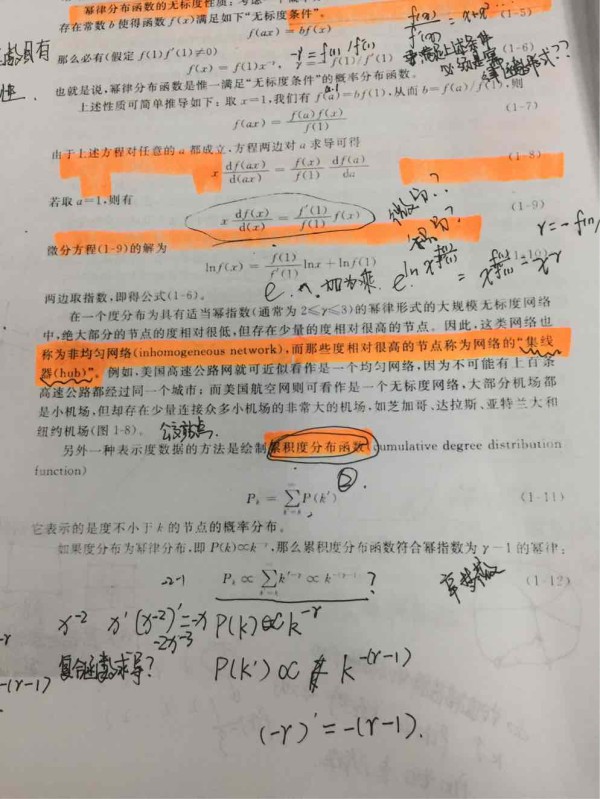 幂律分布函数的无标度性质:
存在常数b使得函数 f(x)满足如下“无标度条件”。
f(ax) = bf(x) (1-5)
那么必有(假定 f(1)f'(1)≠0)
f(x) = f(1)x⁻ᵞ, γ = -f(1)/f'(1) (1-6)
也就是说,幂律分布函数是惟一满足“无标度条件”的概率分布函数。
上述性质可简单推导如下:取 x=1,我们有 f(a)=bf(1),从而 b=f(a)/f(1),则
f(ax) = f(a)f(x)/f(1) (1-7)
由于上述方程对任意的 a 都成立,方程两边对 a 求导可得
x df(ax)/d(ax) = f(x)/f(1) df(a)/da (1-8)
若取 a=1,则有
x df(x)/d(x) = f'(1)/f(1) f(x) (1-9)
微分方程(1-9)的解为
lnf(x) = f(1)/f'(1) lnx + lnf(1)
两边取指数,即得公式(1-6)。
在一个度分布为具有适当幂指数(通常为 2≤γ≤3)的幂律形式的大规模无标度网络
中,绝大部分的节点的度相对很低,但存在少量的度相对很高的节点。因此,这类网络也
称为非均匀网络(inhomogeneous network),而那些度相对很高的节点称为网络的“集线
器(hub)”。例如,美国高速公路网就可近似看作是一个均匀网络,因为不可能有上百条
高速公路都经过同一个城市;而美国航空网则可看作是一个无标度网络,大部分机场都
是小机场,但却存在少量连接众多小机场的非常大的机场,如芝加哥、达拉斯、亚特兰大和
纽约机场(图 1-8)。 公交站点.
另外一种表示度数据的方法是绘制累积度分布函数(cumulative degree distribution
function)
②
Pₖ = ∑P(k') (1-11)
它表示的是度不小于 k 的节点的概率分布。
如果度分布为幂律分布,即 P(k)∝k⁻ᵞ,那么累积度分布函数符合幂指数为 γ-1 的幂律:
Pₖ ∝ ∑k'⁻ᵞ ∝ k⁻⁽ᵞ⁻¹⁾ ? (1-12)
P(k)∝k⁻ᵞ
-2x⁻³
复合函数求导?
P(k') ∝ k⁻⁽ᵞ⁻¹⁾
-(γ-1)
(-γ)' = -(γ-1).